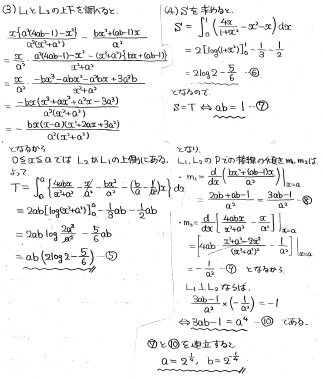 (3) L₁とL₂の上下を調べると、
x{a²(4ab-1)-x²}/a²(x²+a²) - bx²+(ab-1)x/a²
= x/a² · a²(4ab-1)-x²-(x²+a²){bx+(ab-1)}/x²+a²
= x/a² · -bx³-abx²-a²bx+3a³b/x²+a²
= -bx(x³+ax²+a²x-3a³)/a²(x²+a²)
= -bx(x-a)(x²+2ax+3a²)/a²(x²+a²)
となるから
0≦x≦aではL₂がL₁の上側にある。
よって、
T=∫₀ᵃ{4abx/x²+a² - x/a² - bx²/a² - (b/a - 1/a²)x}dx
=2ab[log(x²+a²)]₀ᵃ - 1/3ab - 1/2ab
=2ab log 2a²/a² - 5/6ab
=ab(2log2 - 5/6) -⑤
(4) Sを求めると、
S=∫₀¹(4x/1+x² - x² - x)dx
=2[log(1+x²)]₀¹ - 1/3 - 1/2
=2log2 - 5/6 -⑥
となるので
S=T ⇔ ab=1 -⑦
となり、
L₁,L₂のPでの接線の傾きm₁,m₂は
・m₁= d/dx{bx²+(ab-1)x/a²}|x=a
= 2ab+ab-1/a² = 3ab-1/a² -⑧
・m₂= d/dx[4abx/x²+a² - x/a²]|x=a
=[4ab x²+a²-2x²/(x²+a²)² - 1/a²]x=a
= -1/a² -⑨ となるから
L₁⊥L₂ならば、
3ab-1/a² × (-1/a²) = -1
⇔ 3ab-1=a⁴ -⑩ である。
⑦と⑩を連立すると
a=2^¼, b=2^-¼